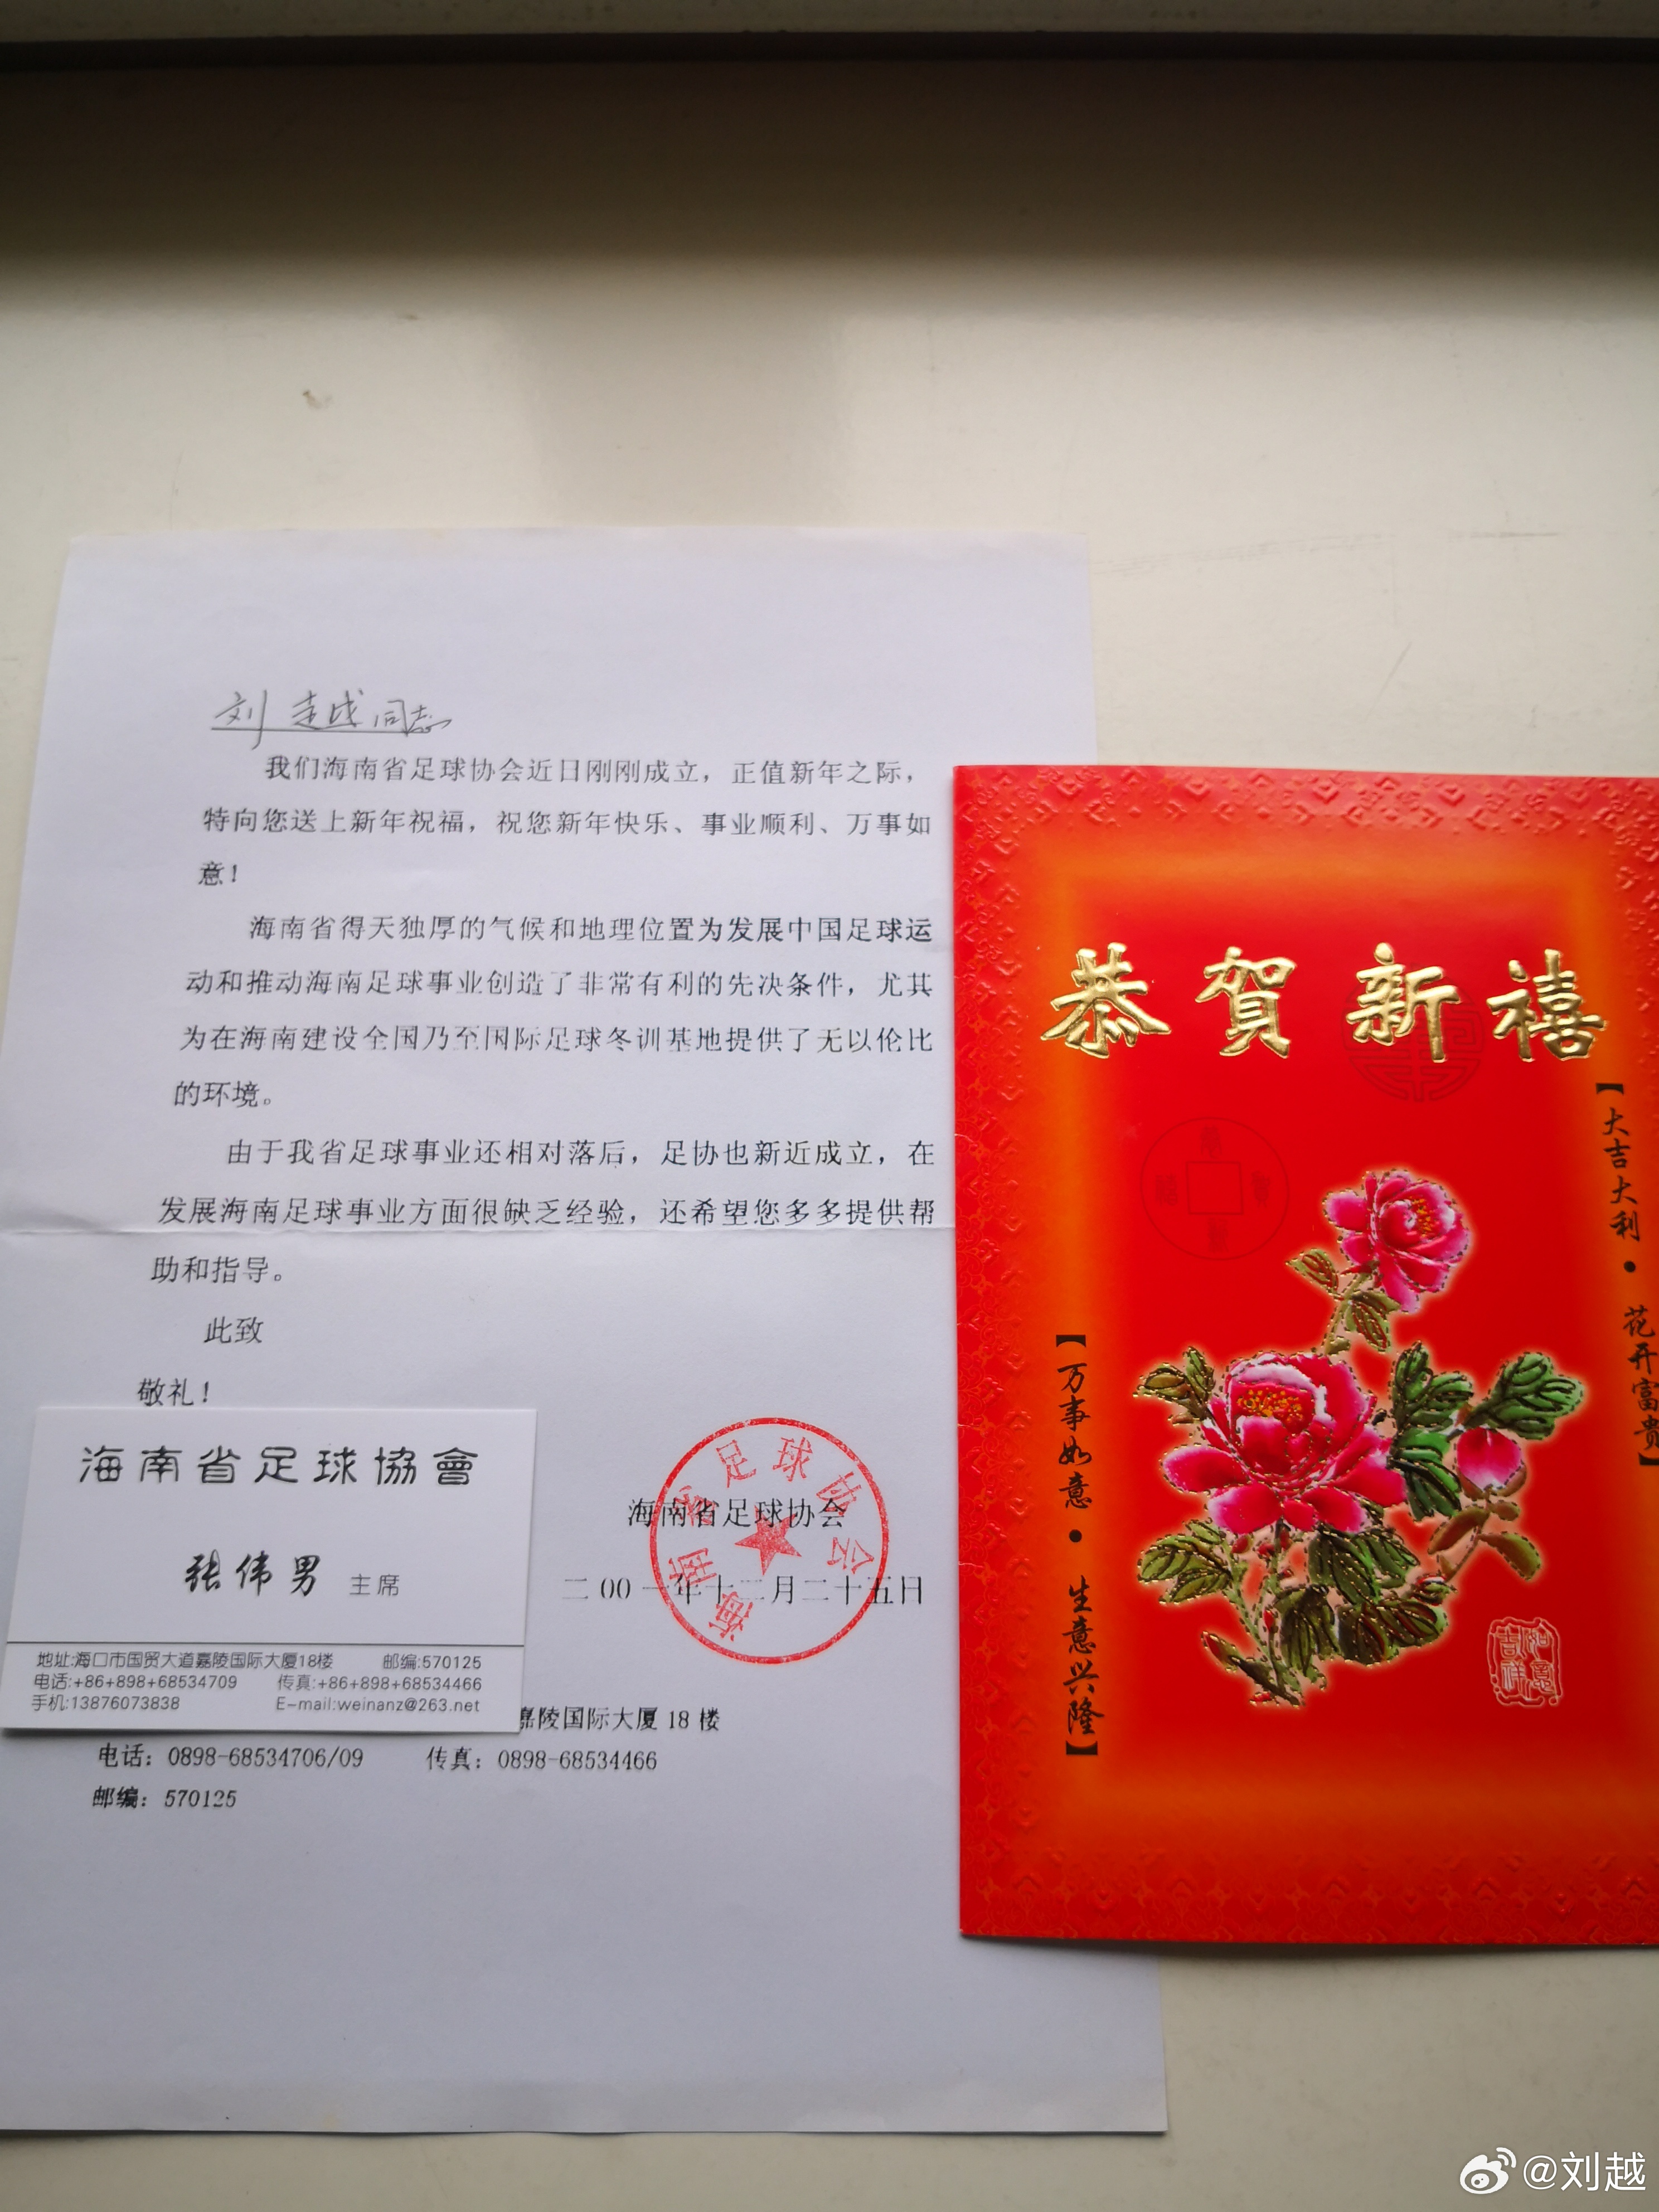 刘越同志
我们海南省足球协会近日刚刚成立，正值新年之际，
特向您送上新年祝福，祝您新年快乐、事业顺利、万事如
意！
海南省得天独厚的气候和地理位置为发展中国足球运
动和推动海南足球事业创造了非常有利的先决条件，尤其
为在海南建设全国乃至国际足球冬训基地提供了无以伦比
的环境。
由于我省足球事业还相对落后，足协也新近成立，在
发展海南足球事业方面很缺乏经验，还希望您多多提供帮
助和指导。
此致
敬礼！
海南省足球协会
二00一年十二月二十五日
海南省足球协会
嘉陵国际大厦 18 楼
电话：0898-68534706/09 传真：0898-68534466
邮编：570125
海南省足球協會
张伟男 主席
地址:海口市国贸大道嘉陵国际大厦18楼 邮编:570125
电话:+86+898+68534709 传真:+86+898+68534466
手机:13876073838 E-mail:weinanz@263.net
恭贺新禧
【大吉大利·花开富贵】
【万事如意·生意兴隆】
吉祥如意
@刘越